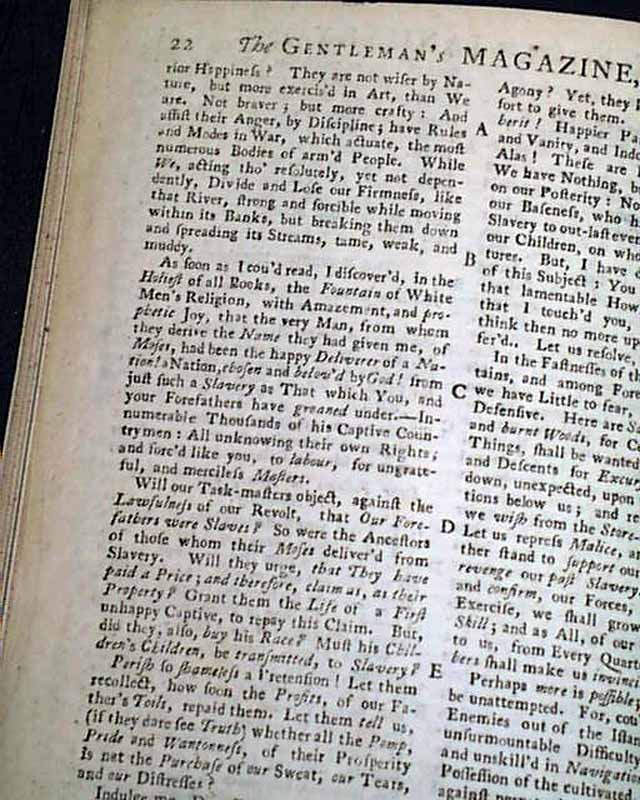 22 The GENTLEMAN's MAGAZINE,
rior Happineſs? They are not wiſer by Na-
ture, but more exercis'd in Art, than We
are. Not braver; but more crafty: And
aſſiſt their Anger, by Diſcipline; have Rules
and Modes in War, which actuate, the moſt
numerous Bodies of arm'd People. While
We, acting tho' reſolutely, yet not depen-
dently, Divide and Loſe our Firmneſs, like
that River, ſtrong and forcible while moving
within its Banks, but breaking them down
and ſpreading its Streams, tame, weak, and
muddy.
As ſoon as I cou'd read, I diſcover'd, in the
Holieſt of all Books, the Fountain of White
Men's Religion, with Amazement, and pro-
phetic Joy, that the very Man, from whom
they derive the Name they had given me, of
Moſes, had been the happy Deliverer of a Na-
tion! a Nation, choſen and belov'd by God! from
juſt ſuch a Slavery as That which You, and
your Forefathers have groaned under.—In-
numerable Thouſands of his Captive Coun-
trymen: All unknowing their own Rights;
and forc'd like you, to labour, for ungrate-
ful, and mercileſs Maſters.
Will our Task-maſters object, againſt the
Lawfulneſs of our Revolt, that Our Fore-
fathers were Slaves? So were the Anceſtors
of thoſe whom their Moſes deliver'd from
Slavery. Will they urge, that They have
paid a Price; and therefore, claim us, as their
Property? Grant them the Life of a Firſt
unhappy Captive, to repay this Claim. But,
did they, alſo, buy his Race? Muſt his Chil-
dren's Children, be tranſmitted, to Slavery?
Periſh ſo ſhameleſs a Pretenſion! Let them
recollect, how ſoon the Profits, of our Fa-
ther's Toils, repaid them. Let them tell us,
(if they dare ſee Truth) whether all the Pomp,
Pride and Wantonneſs, of their Proſperity
is not the Purchaſe of our Sweat, our Tears,
and our Diſtreſſes?
Indulge me,
A
B
C
D
E
Agony? Yet, they
fort to give them.
berit? Happier
and Vanity, and
Alas! Theſe are
We have Nothing,
on our Poſterity:
our Baſeneſs, who
Slavery to out-laſt
our Children, on
tures. But, I have
of this Subject: You
that lamentable
that I touch'd you,
think then no more
fer'd.. Let us reſolve
In the Faſtneſſes of
tains, and among
we have Little to fear,
Defenſive. Here are
and burnt Woods, for
Things, ſhall be
and Deſcents for
down, unexpected, upon
tions below us; and
we wiſh from the Store-
Let us repreſs Malice,
ther ſtand to ſupport our
revenge our paſt Slavery.
and confirm, our Forces,
Exerciſe, we ſhall grow
Skill; and as All, of our
to us, from Every
bers ſhall make us
Perhaps more is poſſible;
be unattempted. For,
Enemies out of the
unſurmountable Difficulty
and unskill'd in
Poſſeſſion of the cultivated
againſt